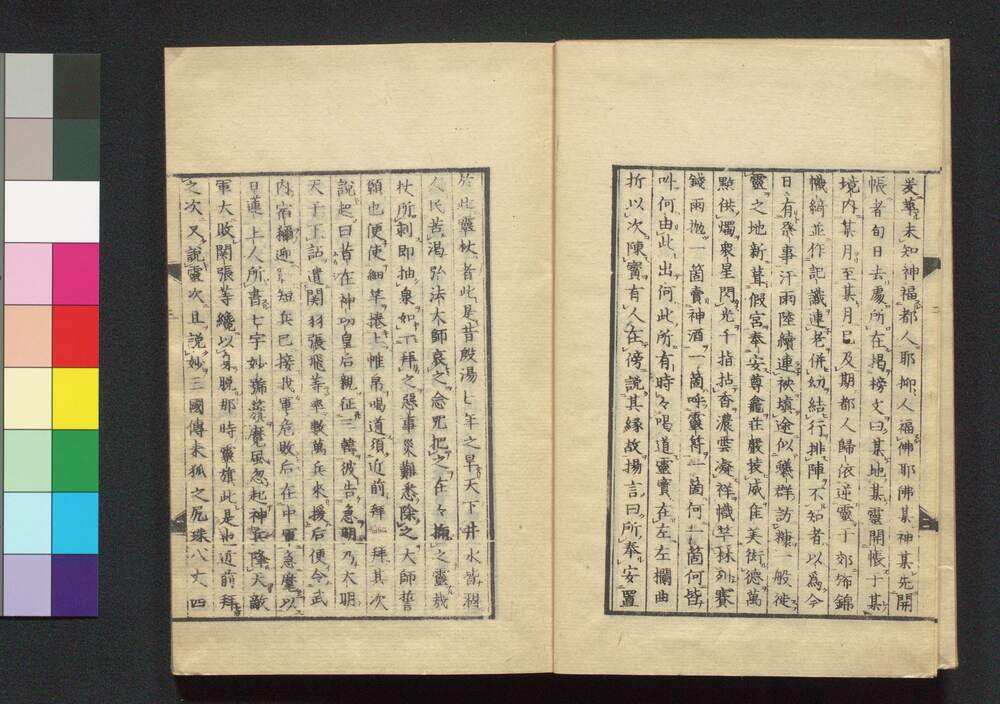 美華未知神福都人耶抑人福佛耶佛某神某先開
帳者旬日去處所在揭榜文曰某地某靈開帳于某
境内某月至某月已及期都人歸依逆靈于郊旆錦
幟縞並作記讖連老併幼結行排陣不知者以為今
日有祭事汗雨陸續連袂塡途似蟻群訪糠一般徙
靈之地新葺假宮奉安尊龕荘嚴裝威隹美街德萬
點供燭衆星閃光千指拈香濃雲凝祥幟竿林列賽
錢雨拋一箇賣神酒一箇呼靈符一箇何一箇何皆
叫何由此出何此所有時々喝道靈寶在左左欄曲
折以次陳寶有人在傍說其緣故揚言曰所奉安置
於此靈杖者此是昔殷湯七年之旱天下井水皆涸
人民苦渴弘法大師哀之念咒把之在々搠之靈哉
杖所刺即抽泉如一拜之惡事災難悉除之大師誓
願也便使細竿捲上帷帛喝道須近前拜一拜其次
說起曰昔在神功皇后親征三韓彼告急明乃大明
天子下詔遣関羽張飛等率數萬兵來援后便令武
内宿禰迎知兵已接我軍危敗后在中軍急麾以
日蓮上人所書七字妙齋簇魔風忽起神兵降天敵
軍大敗関張等纔以身脱那時靈旗此是也近前拜
之次又說靈次且說妙三國傳来狐之尻珠八丈四